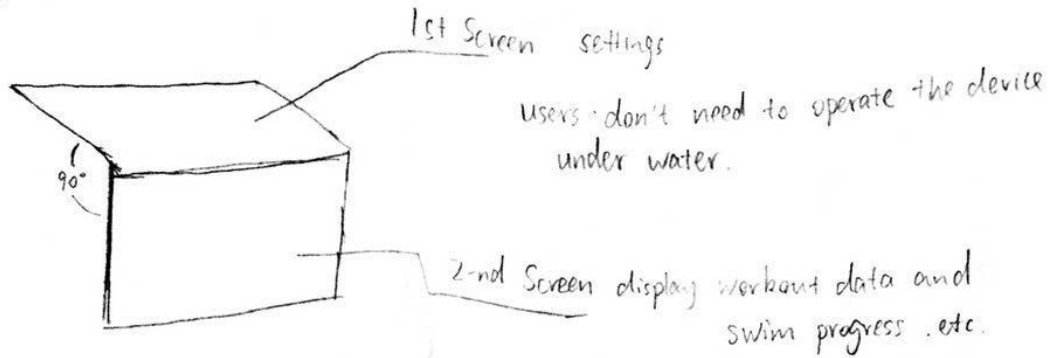 1st Screen settings
users don't need to operate the device
under water.
90°
2-nd Screen display workout data and
swim progress .etc.